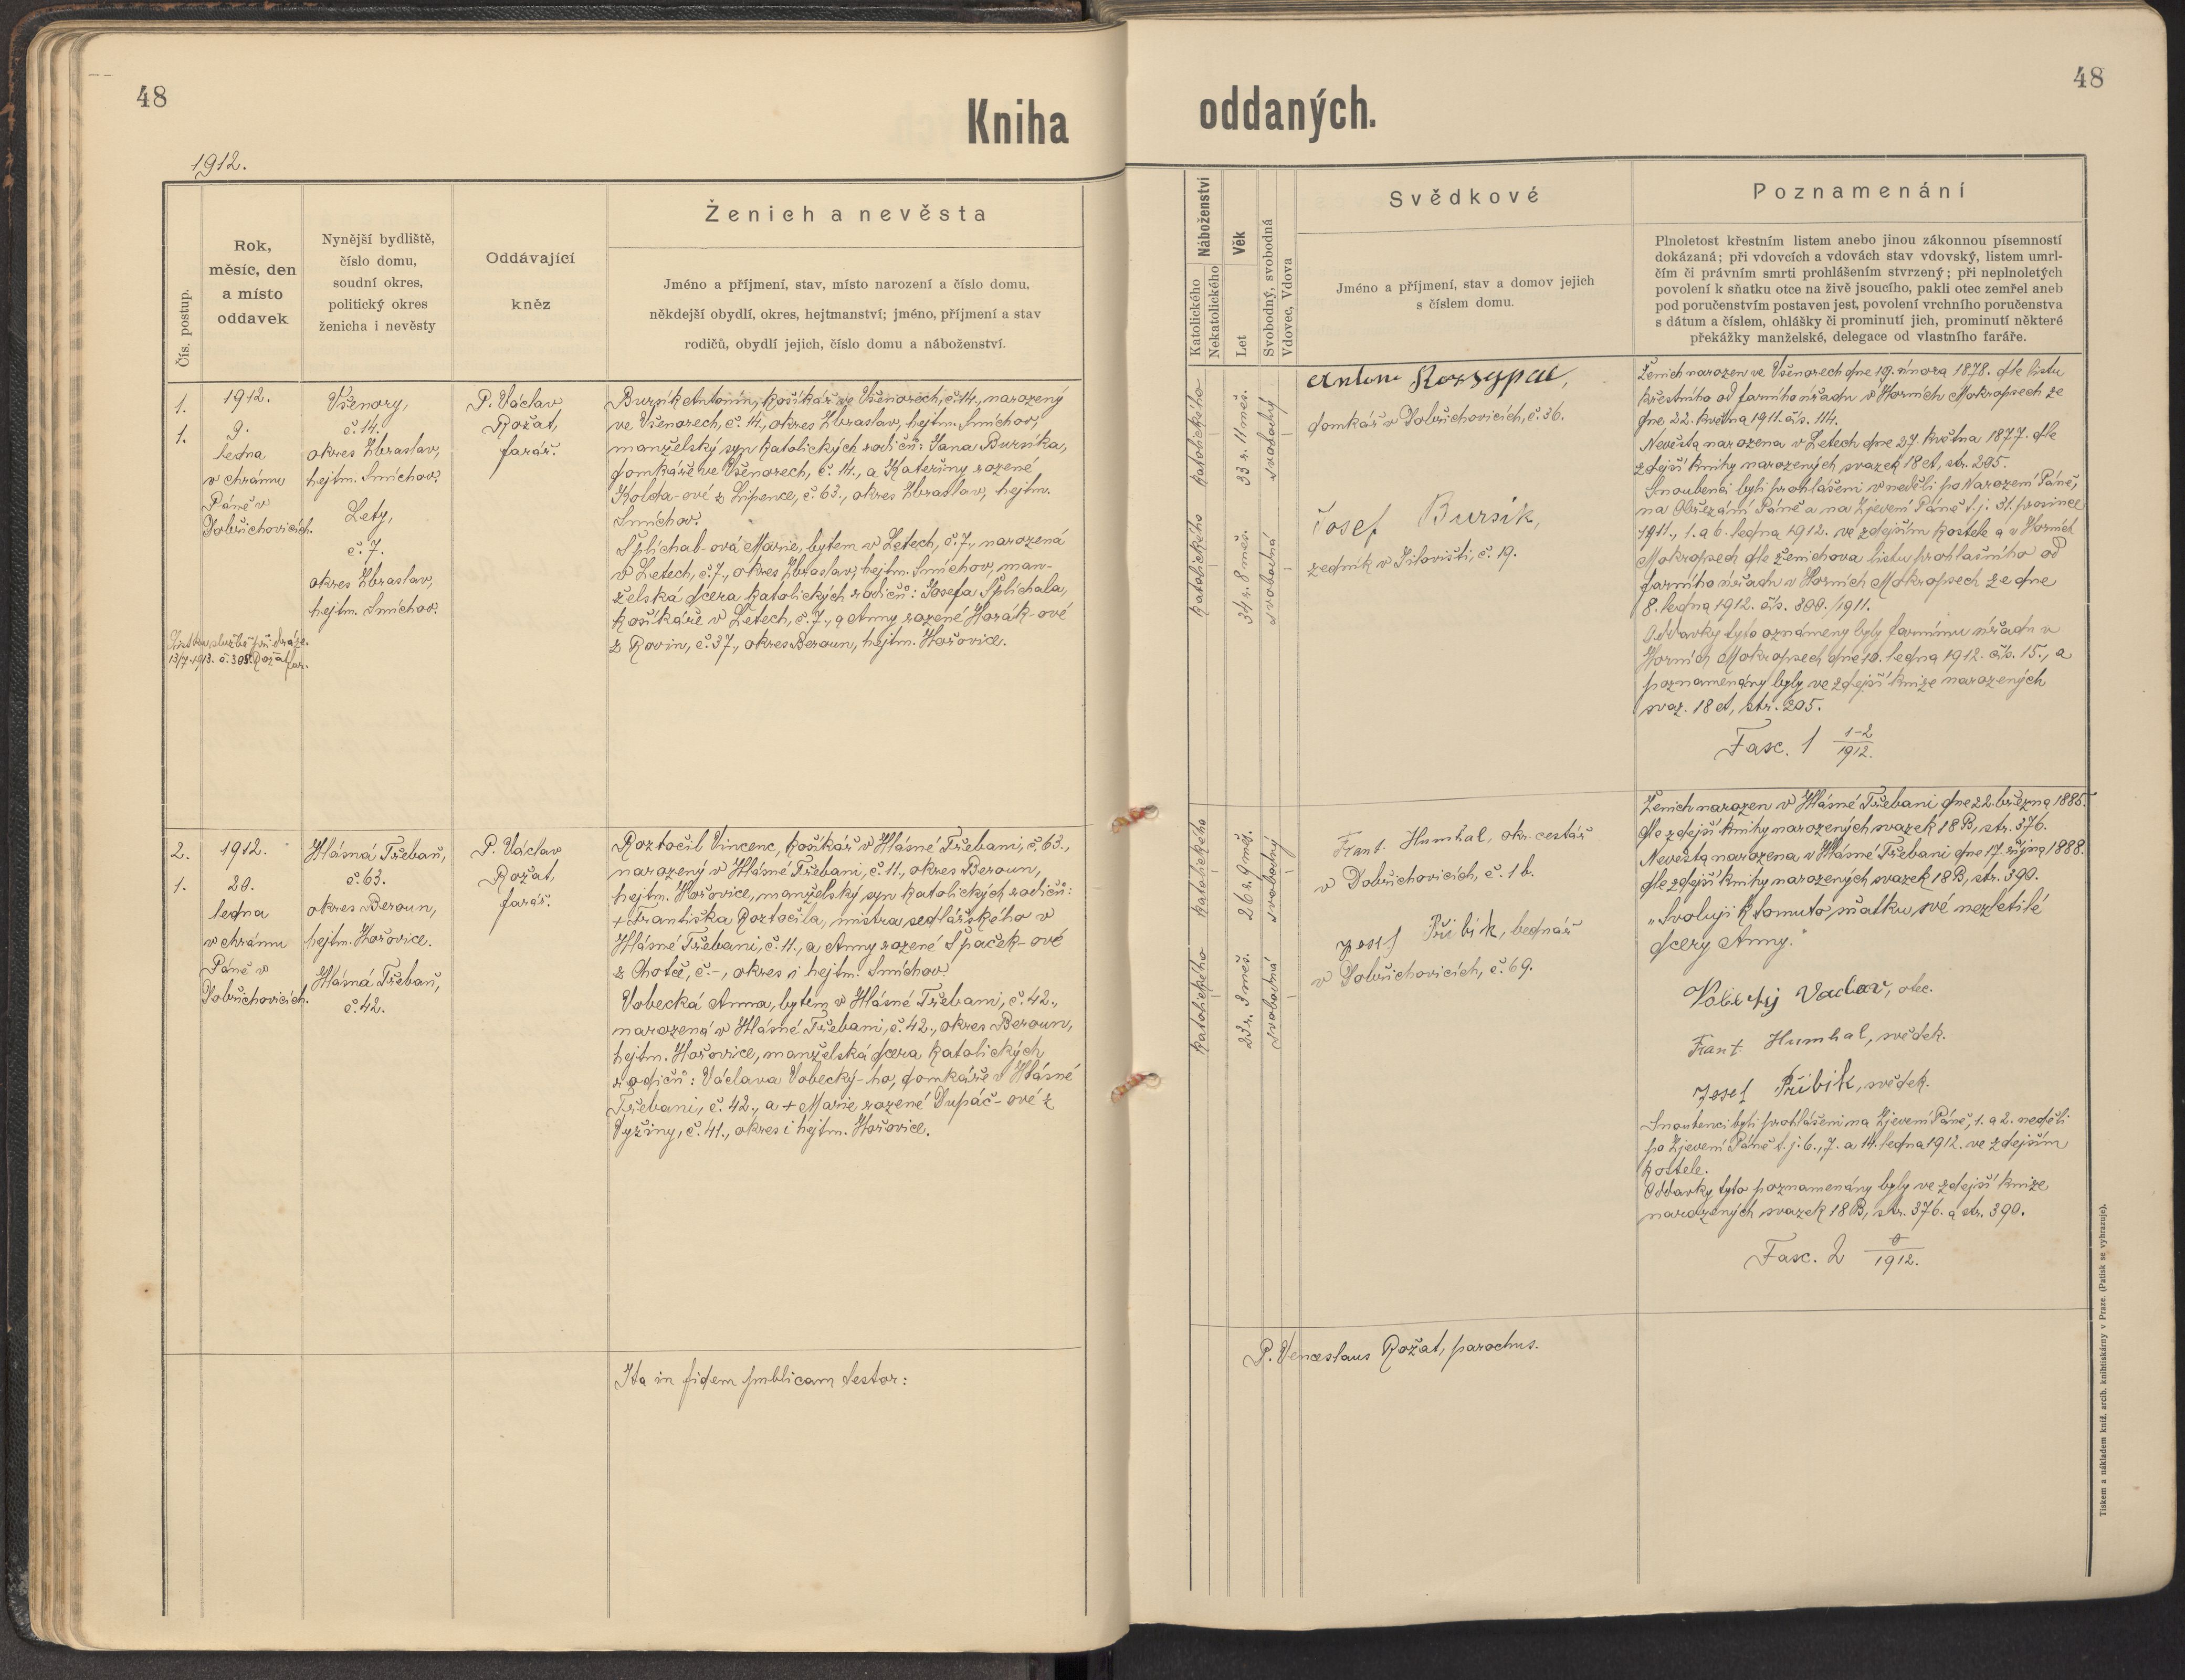 48
Kniha
1912.
Čís. postup.
Rok,
měsíc, den
a místo
oddavek
Nynější bydliště,
číslo domu,
soudní okres,
politický okres
ženicha i nevěsty
Oddávající
kněz
Ženich a nevěsta
Jméno a příjmení, stav, místo narození a číslo domu,
někdejší obydlí, okres, hejtmanství; jméno, příjmení a stav
rodičů, obydlí jejich, číslo domu a náboženství.
1.
1.
1912.
9.
ledna
v chrámu
Páně v
Dobřichovicích.
Všenory,
č. 14.
okres Zbraslav,
hejtm. Smíchov.
Lety,
č. 7.
okres Zbraslav,
hejtm. Smíchov.
P. Václav
Rožat,
farář.
Bursík Antonín, košíkář ve Všenorech, č. 14., narozený
ve Všenorech, č. 14., okres Zbraslav, hejtm. Smíchov,
manželský syn katolických rodičů: Jana Bursíka,
domkáře ve Všenorech, č. 14., a Kateřiny rozené
Kolda-ové z Lipence, č. 63., okres Zbraslav, hejtm.
Smíchov.
Šplíchal-ová Marie, bytem v Letech, č. 7., narozená
v Letech, č. 7., okres Zbraslav, hejtm. Smíchov, man-
želská dcera katolických rodičů: Josefa Šplíchala,
košíkáře v Letech, č. 7., a Anny rozené Horák-ové
z Rovin, č. 37., okres Beroun, hejtm. Hořovice.
13/7. 1913. č. 305. Rožat far.
2.
1.
1912.
20.
ledna
v chrámu
Páně v
Dobřichovicích.
Hlásná Třebaň,
č. 63.
okres Beroun,
hejtm. Hořovice.
Hlásná Třebaň,
č. 42.
P. Václav
Rožat,
farář.
Roztočil Vincenc, košíkář v Hlásné Třebani, č. 63.,
narozený v Hlásné Třebani, č. 11., okres Beroun,
hejtm. Hořovice, manželský syn katolických rodičů:
+ Františka Roztočila, mistra sedlářského v
Hlásné Třebani, č. 11., a Anny rozené Špaček-ové
z Chotče, č. -, okres i hejtm. Smíchov.
Vobecká Anna, bytem v Hlásné Třebani, č. 42.,
narozená v Hlásné Třebani, č. 42., okres Beroun,
hejtm. Hořovice, manželská dcera katolických
rodičů: Václava Vobecký-ho, domkáře v Hlásné
Třebani, č. 42., a + Marie rozené Dupáč-ové z
Vyžiny, č. 41., okres i hejtm. Hořovice.
Ita in fidem publicam testor:
48
oddaných.
Náboženství
Katolického
Nekatolického
Věk
Let
Svobodný, svobodná
Vdovec, Vdova
Svědkové
Jméno a příjmení, stav a domov jejich
s číslem domu.
Poznamenání
Plnoletost křestním listem anebo jinou zákonnou písemností
dokázaná; při vdovcích a vdovách stav vdovský, listem umrl-
čím či právním smrti prohlášením stvrzený; při neplnoletých
povolení k sňatku otce na živě jsoucího, pakli otec zemřel aneb
pod poručenstvím postaven jest, povolení vrchního poručenstva
s dátum a číslem, ohlášky či prominutí jich, prominutí některé
překážky manželské, delegace od vlastního faráře.
Katolického
33 r. 11 měs.
svobodný
Katolického
34 r. 8 měs.
svobodná
Antonín Rozsypal,
domkář v Dobřichovicích, č. 36.
Josef Bursík,
zedník v Jílovišti, č. 19.
Ženich narozen ve Všenorech dne 19. února 1878. dle listu
křestního od farního úřadu v Horních Mokropsech ze
dne 22. května 1911. čís. 114.
Nevěsta narozena v Letech dne 27. května 1877. dle
zdejší knihy narozených svazek 18 A, str. 205.
Snoubenci byli prohlášeni v neděli po Narození Páně,
na Obřezání Páně a na Zjevení Páně t. j. 31. prosince
1911., 1. a 6. ledna 1912. ve zdejším kostele a v Horních
Mokropsech dle ženichova listu prohlašního od
farního úřadu v Horních Mokropsech ze dne
8. ledna 1912. čís. 300./1911.
Oddavky tyto oznámeny byly farnímu úřadu v
Horních Mokropsech dne 10. ledna 1912. čís. 15., a
poznamenány byly ve zdejší knize narozených
svaz. 18 A, str. 205.
Fasc. 1 1-2/1912.
Katolického
26 r. 9 měs.
svobodný
Katolického
23 r. 3 měs.
svobodná
Frant. Humhal, okr. cestář
v Dobřichovicích, č. 1 b.
Josef Přibík, bednář
v Dobřichovicích, č. 69.
Ženich narozen v Hlásné Třebani dne 22. března 1885.
dle zdejší knihy narozených svazek 18 B, str. 376.
Nevěsta narozena v Hlásné Třebani dne 17. října 1888.
dle zdejší knihy narozených svazek 18 B, str. 390.
„Svoluji k tomuto sňatku své nezletilé
dcery Anny."
Vobecký Václav, otec.
Frant. Humhal, svědek.
Josef Přibík, svědek.
Snoubenci byli prohlášeni na Zjevení Páně, 1. a 2. neděli
po Zjevení Páně t. j. 6., 7. a 14. ledna 1912. ve zdejším
kostele.
Oddavky tyto poznamenány byly ve zdejší knize
narozených svazek 18 B, str. 376. a str. 390.
Fasc. 2 0/1912.
P. Venceslaus Rožat, parochus.
Tiskem a nákladem kníž. arcib. knihtiskárny v Praze. (Patisk se vyhrazuje).